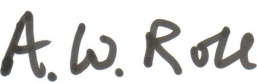 A. W. Roll